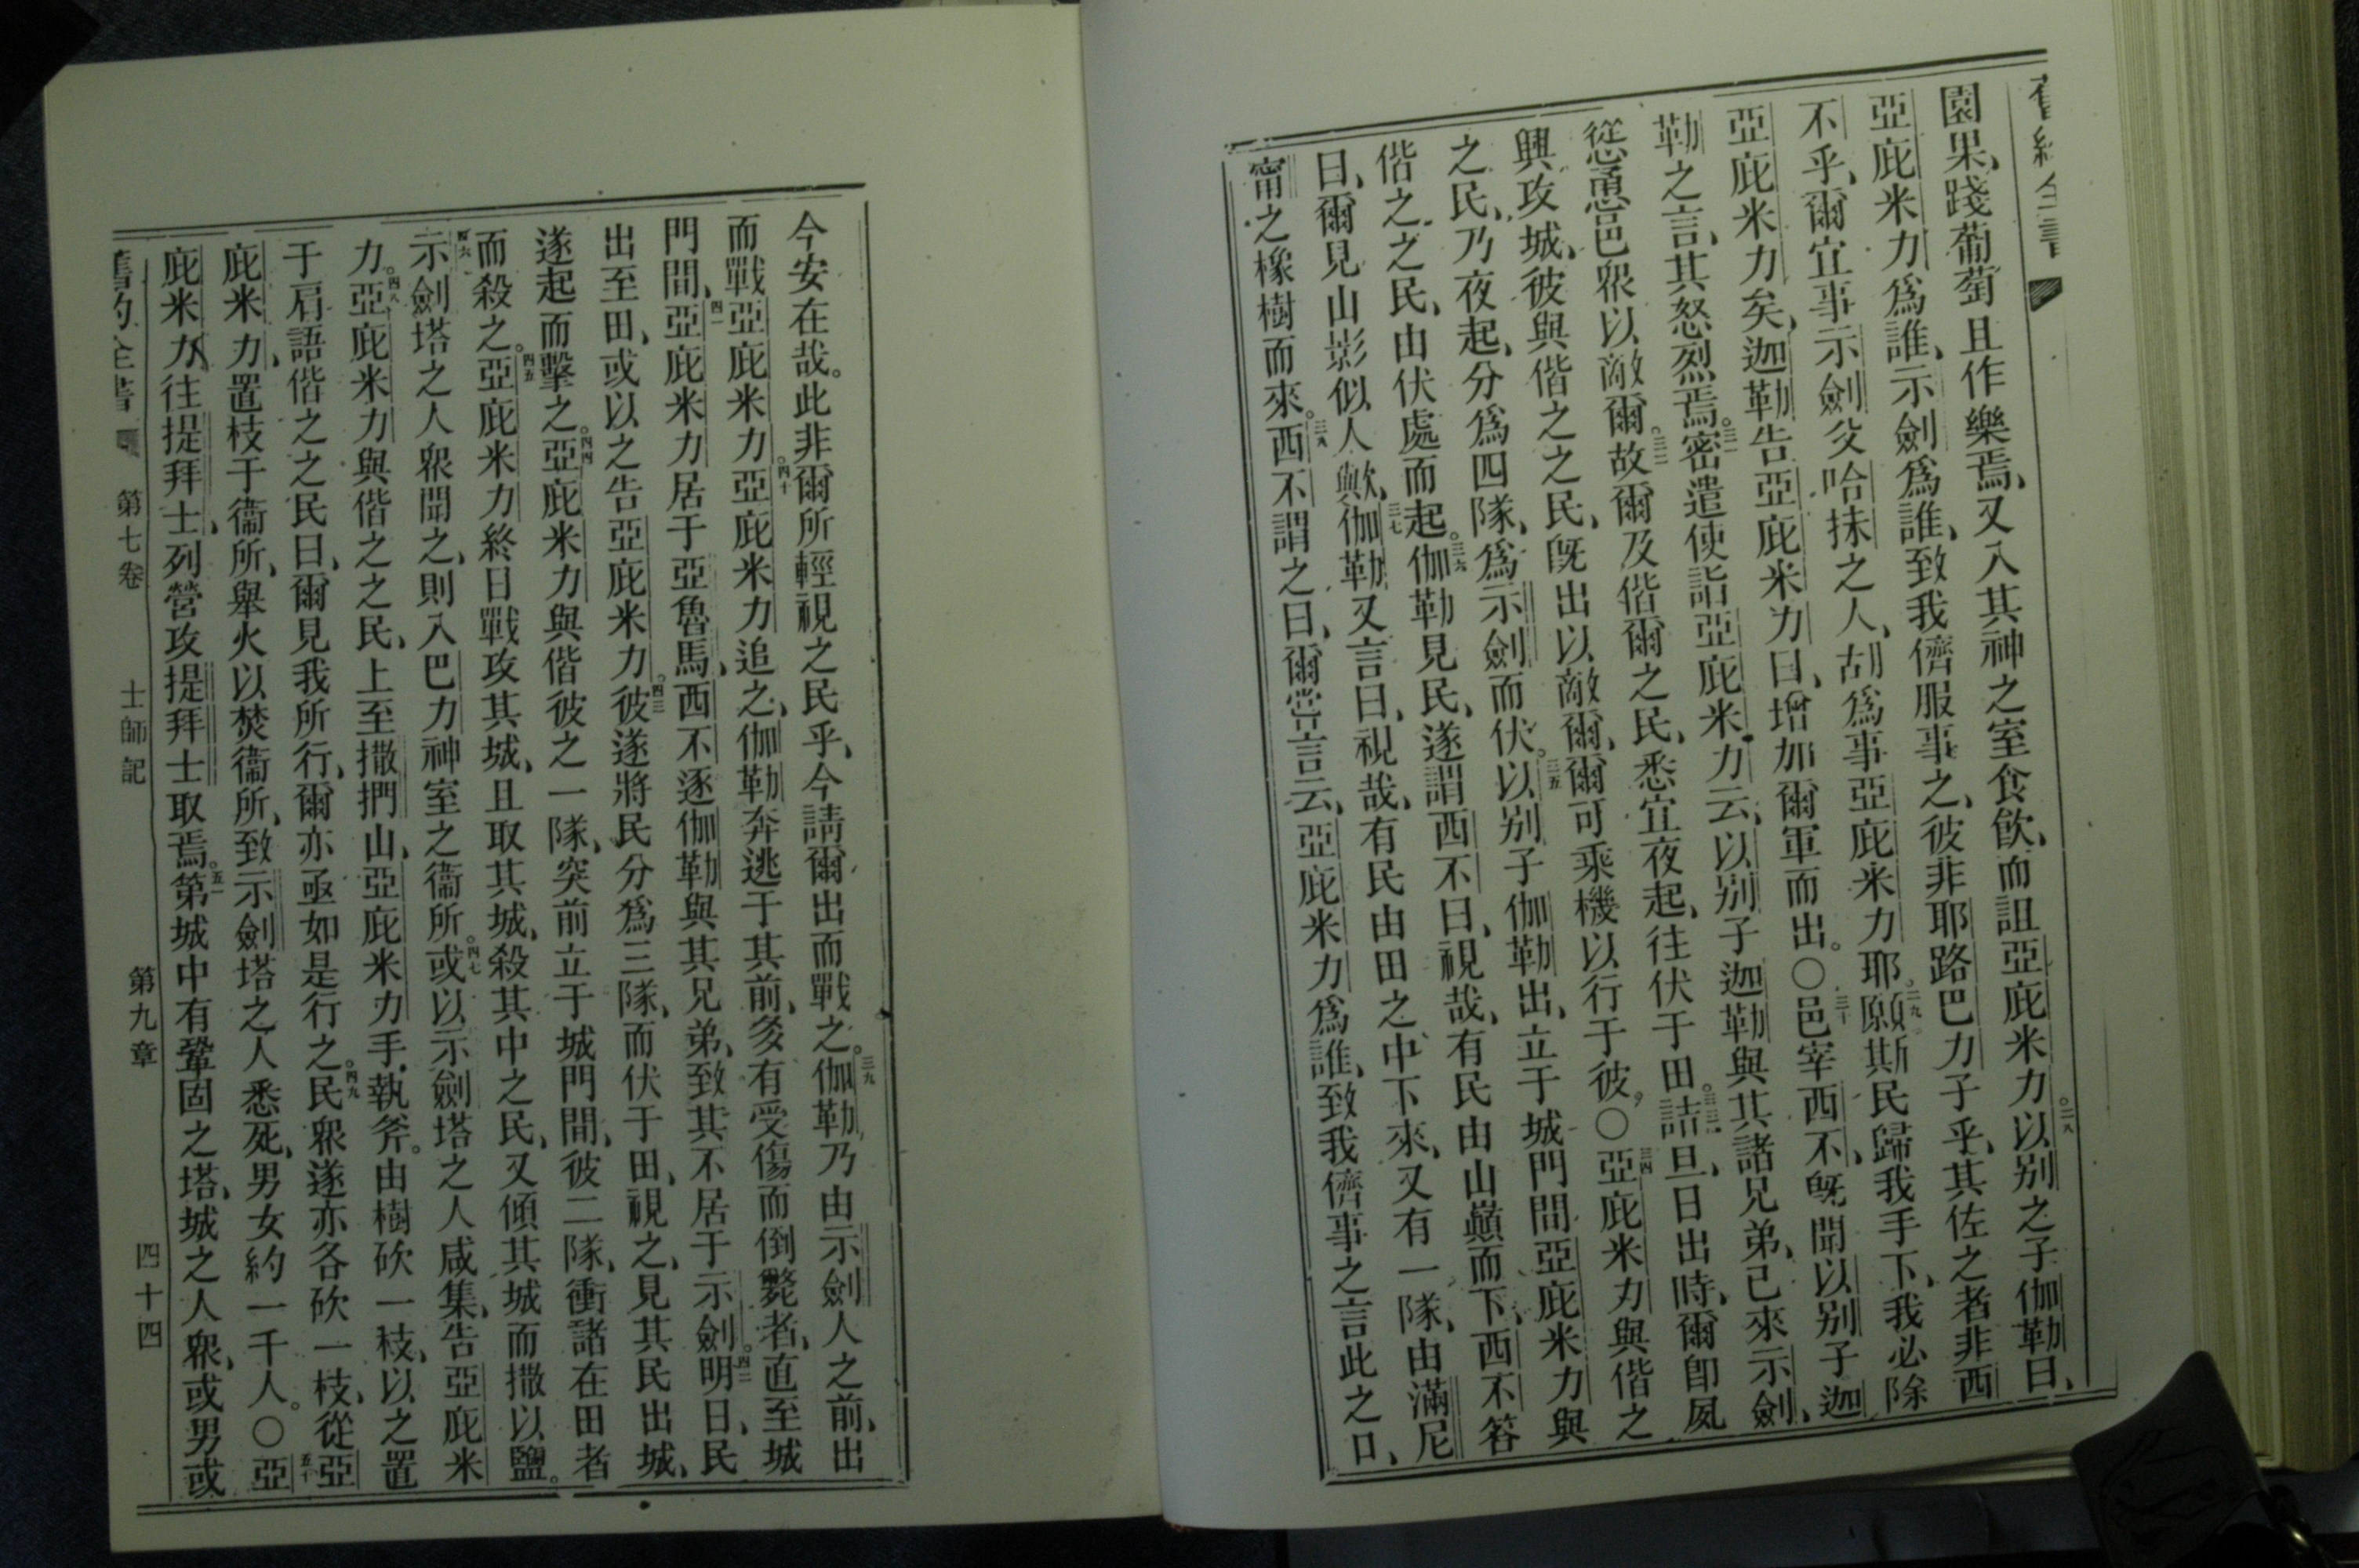 舊約全書
園果、踐葡萄且作樂焉、又入其神之室食飲、而詛亞庇米力。二八以別之子伽勒曰、
亞庇米力爲誰、示劍爲誰、致我儕服事之、彼非耶路巴力子乎、其佐之者非西
不乎、爾宜事示劍父哈抹之人、胡爲事亞庇米力耶。二九願斯民歸我手下、我必除
亞庇米力矣、迦勒告亞庇米力曰、增加爾軍而出。〇三十邑宰西不、旣聞以別子迦
勒之言、其怒烈焉。三一密遣使詣亞庇米力云、以別子迦勒與其諸兄弟、已來示劍、
慫恿邑衆以敵爾。三二故爾及偕爾之民、悉宜夜起、往伏于田。三三詰旦、日出時、爾卽夙
興攻城、彼與偕之之民、旣出以敵爾、爾可乘機以行于彼。〇三四亞庇米力與偕之
之民、乃夜起、分爲四隊、爲示劍而伏。三五以別子伽勒出、立于城門間、亞庇米力與
偕之之民、由伏處而起。三六伽勒見民、遂謂西不曰、視哉、有民由山巓而下、西不答
曰、爾見山影似人歟、三七伽勒又言曰、視哉、有民由田之中下來、又有一隊、由滿尼
甯之橡樹而來。三八西不謂之曰、爾嘗言云、亞庇米力爲誰、致我儕事之言此之口、
今安在哉。此非爾所輕視之民乎、今請爾出而戰之。三九伽勒乃由示劍人之前、出
而戰亞庇米力。四十亞庇米力追之、伽勒奔逃于其前、多有受傷而倒斃者、直至城
門間、四一亞庇米力居于亞魯馬、西不逐伽勒與其兄弟、致其不居于示劍。四二明日、民
出至田、或以之告亞庇米力。四三彼遂將民分爲三隊、而伏于田、視之、見其民出城、
遂起而擊之。四四亞庇米力與偕彼之一隊、突前立于城門間、彼二隊、衝諸在田者
而殺之。四五亞庇米力終日戰攻其城、且取其城、殺其中之民、又傾其城而撒以鹽。
四六示劍塔之人衆聞之、則入巴力神室之衞所。四七或以示劍塔之人咸集、告亞庇米
力。四八亞庇米力與偕之之民、上至撒捫山、亞庇米力手執斧。由樹砍一枝、以之置
于肩語偕之之民曰、爾見我所行、爾亦亟如是行之。四九民衆遂亦各砍一枝、從亞
庇米力、置枝于衞所、舉火以焚衞所、致示劍塔之人悉死、男女約一千人。〇五十亞
庇米力、往提拜士、列營攻提拜士取焉。五一第城中有鞏固之塔、城之人衆、或男或
舊約全書 第七卷 士師記 第九章 四十四